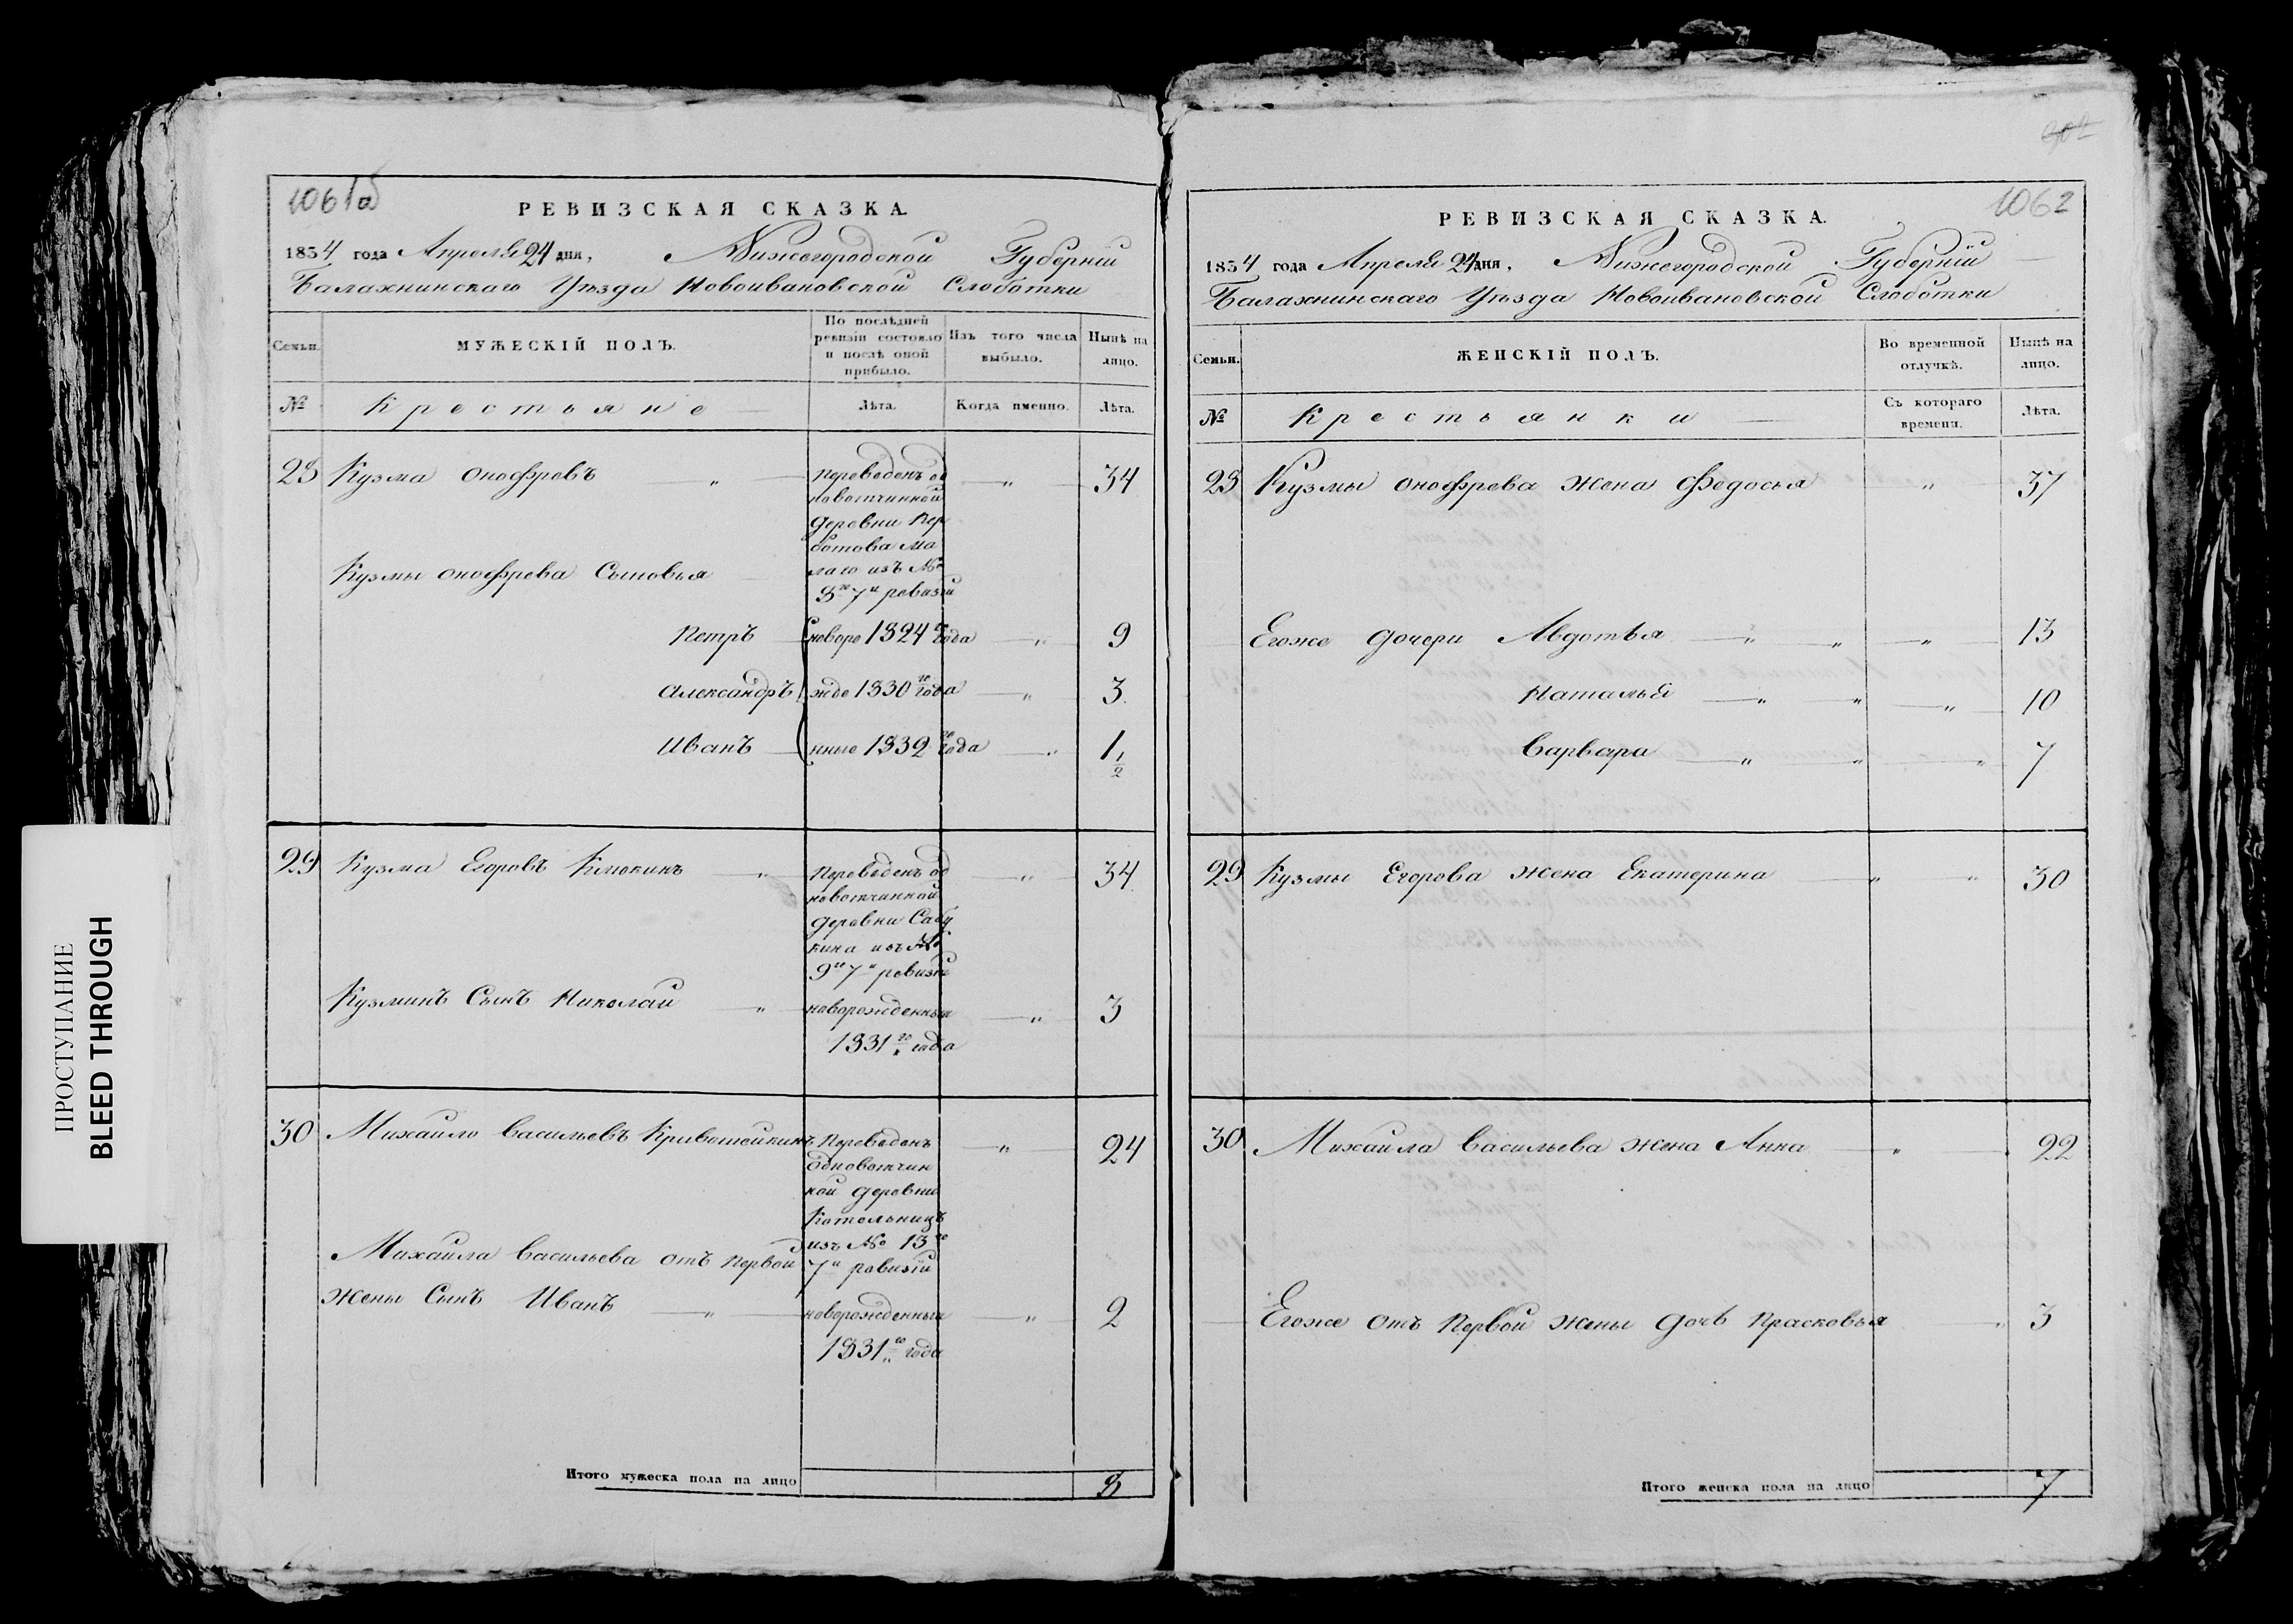 1061об
РЕВИЗСКАЯ СКАЗКА.
1834 года Апреля 24 дня, Нижегородской Губерніи
Балахнинскаго Уѣзда Новоивановской Слоботки
Семьи.
МУЖЕСКІЙ ПОЛЪ.
По послѣдней ревизіи состояло и послѣ оной прибыло.
Изъ того числа выбыло.
Нынѣ на лицо.
№ Крестьяне
Лѣта. Когда именно. Лѣта.
28 Кузма Онофревъ „ Переведенъ од „ 34
новотчинной
деревни
ма
Кузмы Онофрева Сыновья лаго изъ №
8го 7й ревизіи
Петръ новоро 1824го года „ 9
Александръ жде 1830го года „ 3
Иванъ нные 1832го года „ 1 1/2
29 Кузма Егоровъ Клюкинъ „ Переведенъ од „ 34
новотчинной
деревни Сабу
кина изъ №
9го 7й ревизіи
Кузминъ Сынъ Николай „ новорожденный „ 3
1831го года
30 Михайло Васильевъ Кривошейкинъ Переведенъ „ 24
одновотчин
ной деревни
Котельницъ
изъ № 13го
Михайла Васильева отъ первой 7й ревизіи
жены Сынъ Иванъ „ новорожденный „ 2
1831го года
Итого мужеска пола на лицо 8
1062
РЕВИЗСКАЯ СКАЗКА.
1834 года Апреля 24 дня, Нижегородской Губерніи
Балахнинскаго Уѣзда Новоивановской Слоботки
Семьи.
ЖЕНСКІЙ ПОЛЪ.
Во временной отлучкѣ.
Нынѣ на лицо.
№ Крестьянки
Съ котораго времени. Лѣта.
28 Кузмы Онофрева жена Федосья „ 37
Егоже дочери Авдотья „ „ „ 13
Наталья „ „ „ 10
Варвара „ „ „ 7
29 Кузмы Егорова жена Екатерина „ „ 30
30 Михайла Васильева жена Анна „ 22
Егоже отъ первой жены дочь Прасковья „ 3
Итого женска пола на лицо 7
ПРОСТУПАНИЕ
BLEED THROUGH